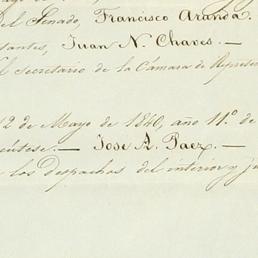 del Senado, Francisco Aranda.
santes, Juan N. Chaves.—
El secretario de la Cámara de Represe
12 de Mayo de 1840, año 11º de
cútese.— Jose A. Paez.—
los despachos del interior y ju